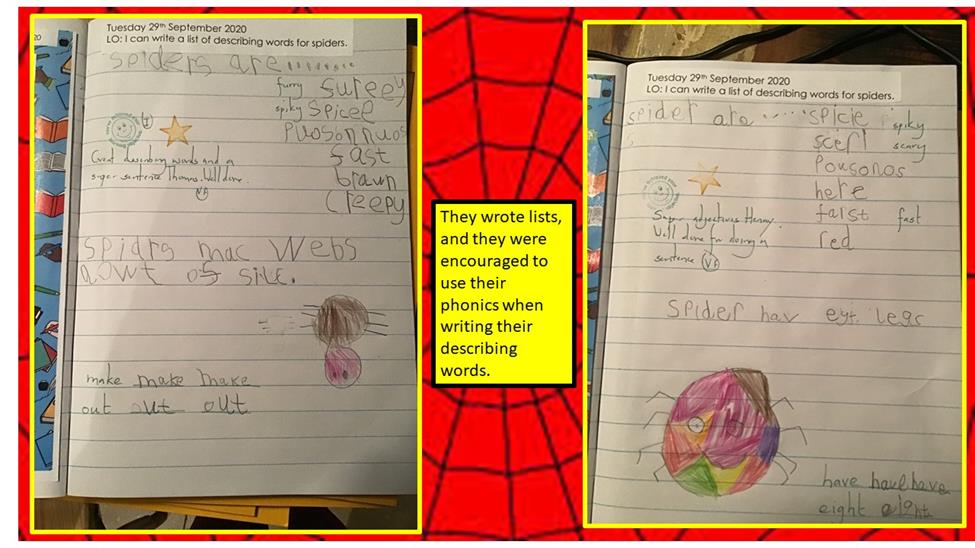 Tuesday 29th September 2020
LO: I can write a list of describing words for spiders.
spiders are........
furry sureey
spiky spicel
Puosonnuos
Great describing words and a
super sentence Thomas. Well done.
fast
brawn
creepy
VA
spidrs mac webs
aowt of silc.
make make make
out out out
They wrote lists,
and they were
encouraged to
use their
phonics when
writing their
describing
words.
Tuesday 29th September 2020
LO: I can write a list of describing words for spiders.
spider are ..... spicie spiky
scerl scary
Pousonos
here
Super adjectives Henry. falst fast
Well done for doing a red
sentence VA
Spider hav eyt. legs
have have have
eight eight